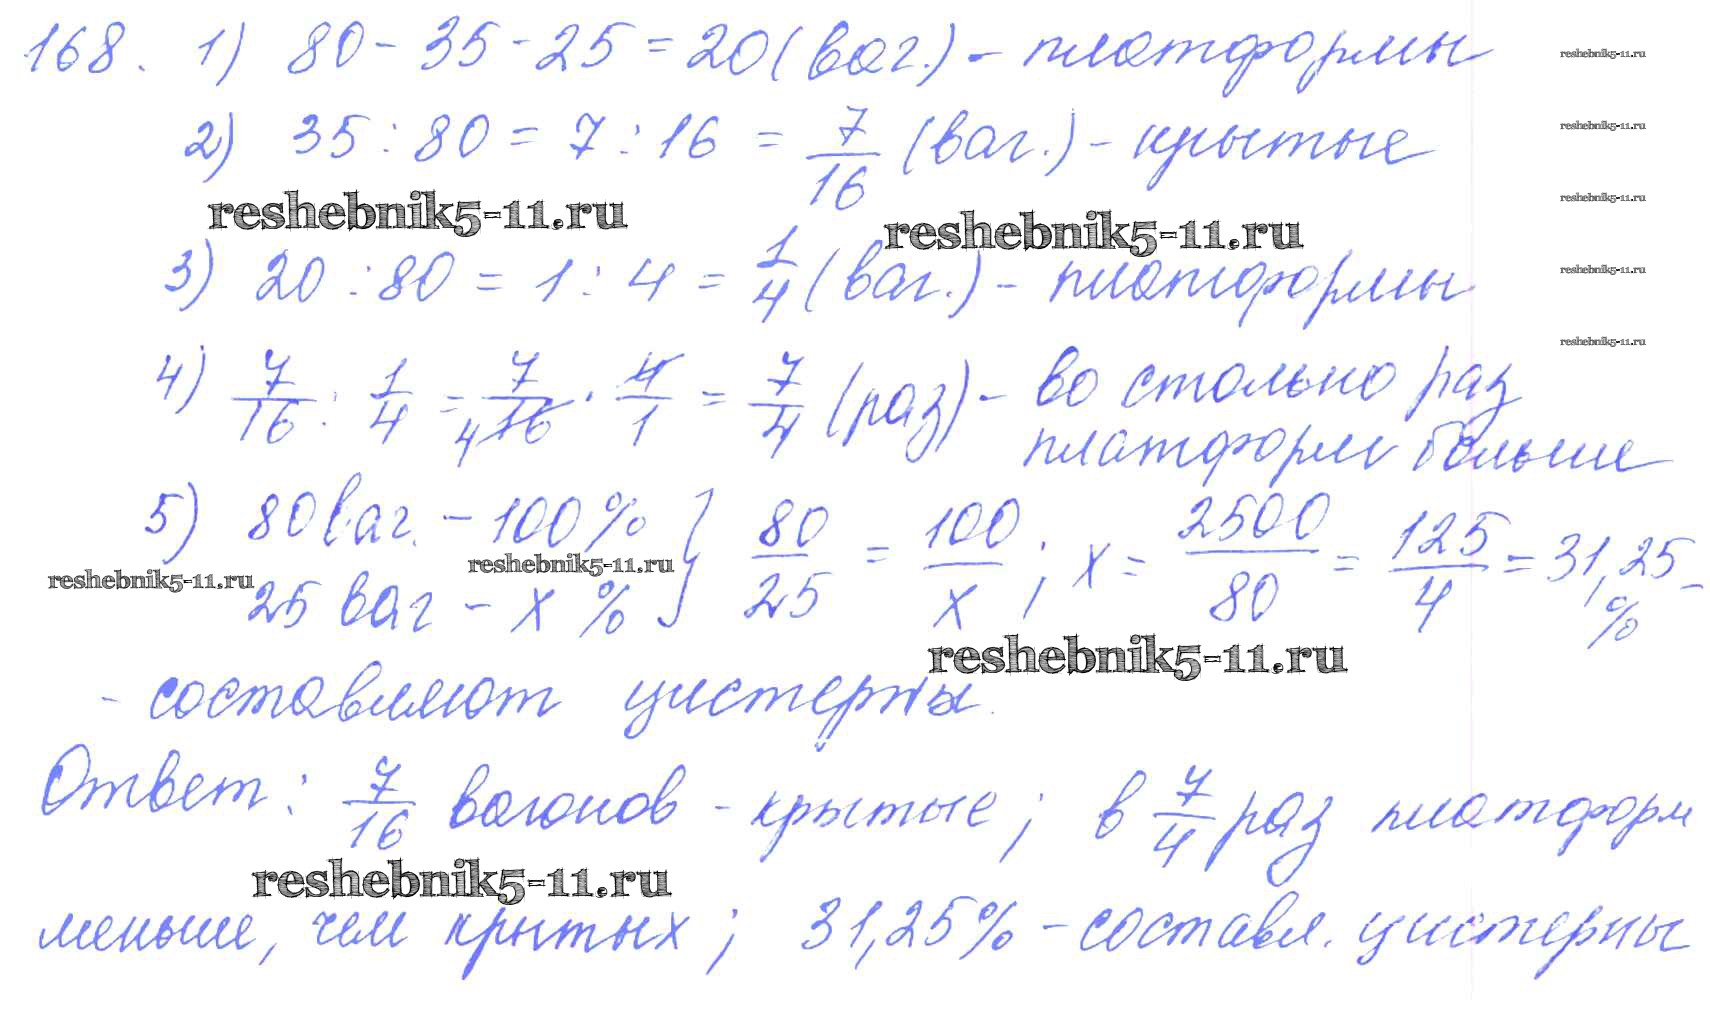 168. 1) 80 - 35 - 25 = 20 (ваг.) - платформы
reshebnik5-11.ru
2) 35 : 80 = 7 : 16 = 7/16 (ваг.) - крытые
reshebnik5-11.ru
reshebnik5-11.ru reshebnik5-11.ru
reshebnik5-11.ru
3) 20 : 80 = 1 : 4 = 1/4 (ваг.) - платформы
reshebnik5-11.ru
4) 7/16 : 1/4 = 7/16 · 4/1 = 7/4 (раз) - во столько раз
4
reshebnik5-11.ru
платформ больше
5) 80 ваг. - 100 % } 80/25 = 100/x ; x = 2500/80 = 125/4 = 31,25 -
%
reshebnik5-11.ru reshebnik5-11.ru
25 ваг - x %
reshebnik5-11.ru
- составляют цистерны.
Ответ : 7/16 вагонов - крытые ; в 7/4 раз платформ
reshebnik5-11.ru
меньше, чем крытых ; 31,25% - составл. цистерны